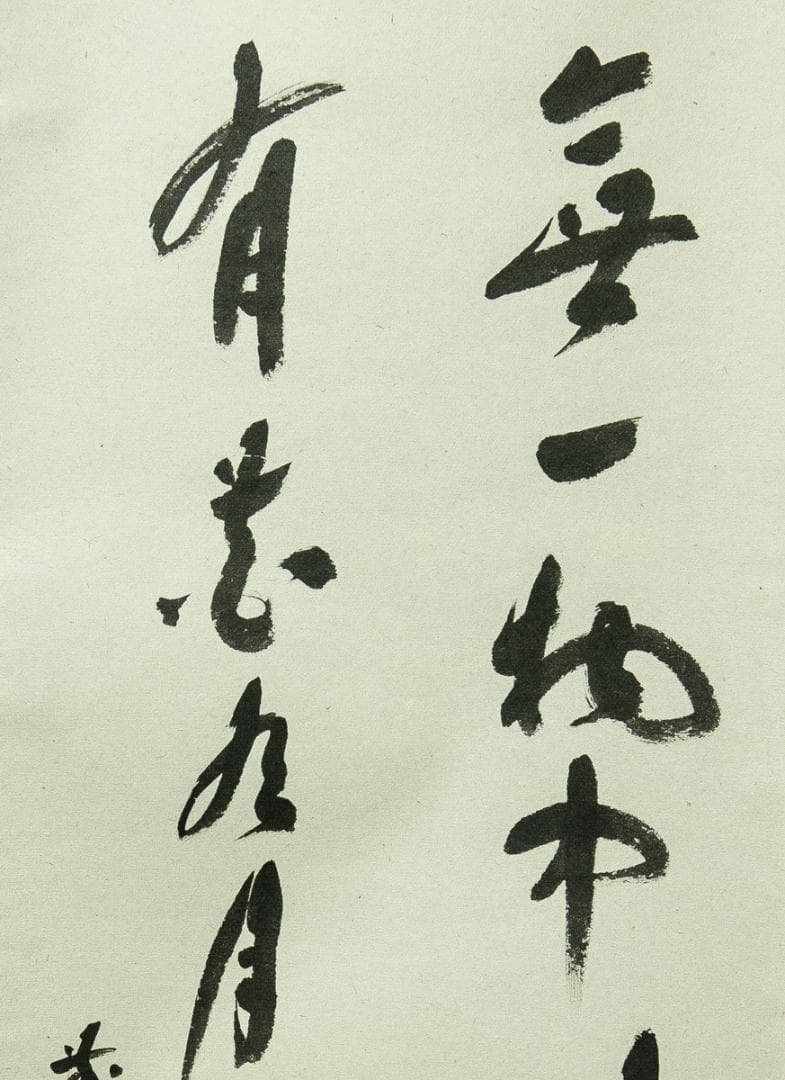 無一物中
有花有月